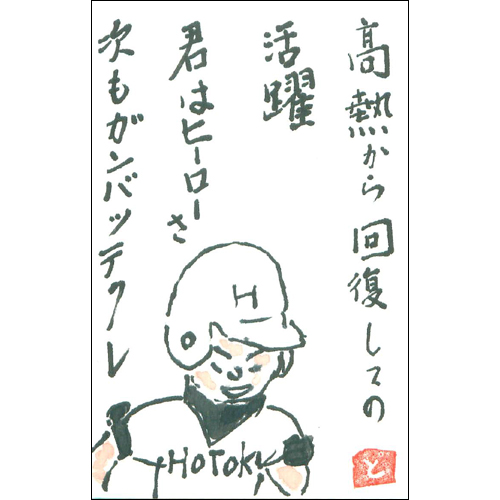 高熱から回復しての
活躍
君はヒーローさ
次もガンバッテクレ
H
HOTOKU
と